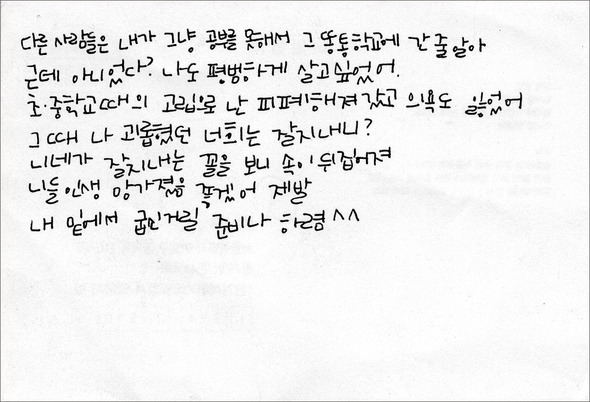 다른 사람들은 내가 그냥 공부를 못해서 그 똥통학교에 간 줄 알아
근데 아니었다? 나도 평범하게 살고싶었어.
초·중학교때의 고립으로 난 피폐해져 갔고 의욕도 잃었어
그때 나 괴롭혔던 너희는 잘지내니?
니네가 잘지내는 꼴을 보니 속이 뒤집어져
니들인생 망가졌음 좋겠어 제발
내 밑에서 굽신거릴 준비나 하렴^^